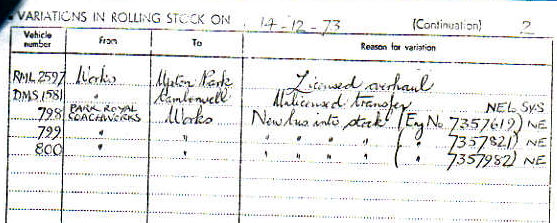 VARIATIONS IN ROLLING STOCK ON 14-12-73 (Continuation) 2
Vehicle number From To Reason for variation
RML 2597 Works Upton Park Licensed overhaul
DMS 1581 " Camberwell Unlicensed transfer NEL SYS
798 PARK ROYAL COACHWORKS Works New bus into stock (Eng No 7357619) NE
799 " " " " " " ( " 7357821) NE
800 " " " " " " ( " 7357982) NE